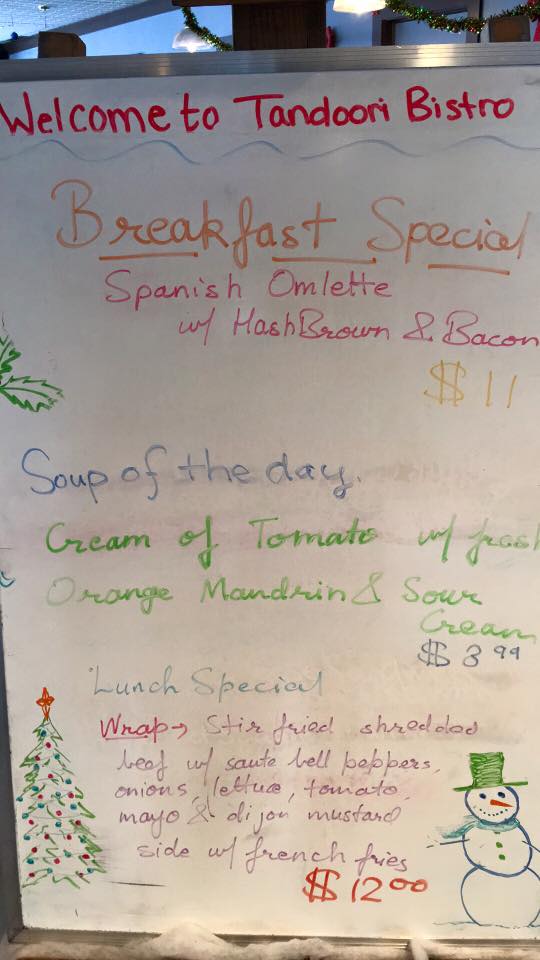 Welcome to Tandoori Bistro
Breakfast Special
Spanish Omlette
w/ HashBrown & Bacon
$11
Soup of the day.
Cream of Tomato w/ fresh
Orange Mandrin & Sour
Cream
$3.99
Lunch Special
Wrap→ Stir fried shredded
beef w/ saute bell peppers,
onions, lettuce, tomato,
mayo & dijon mustard
side w/ french fries
$12.00